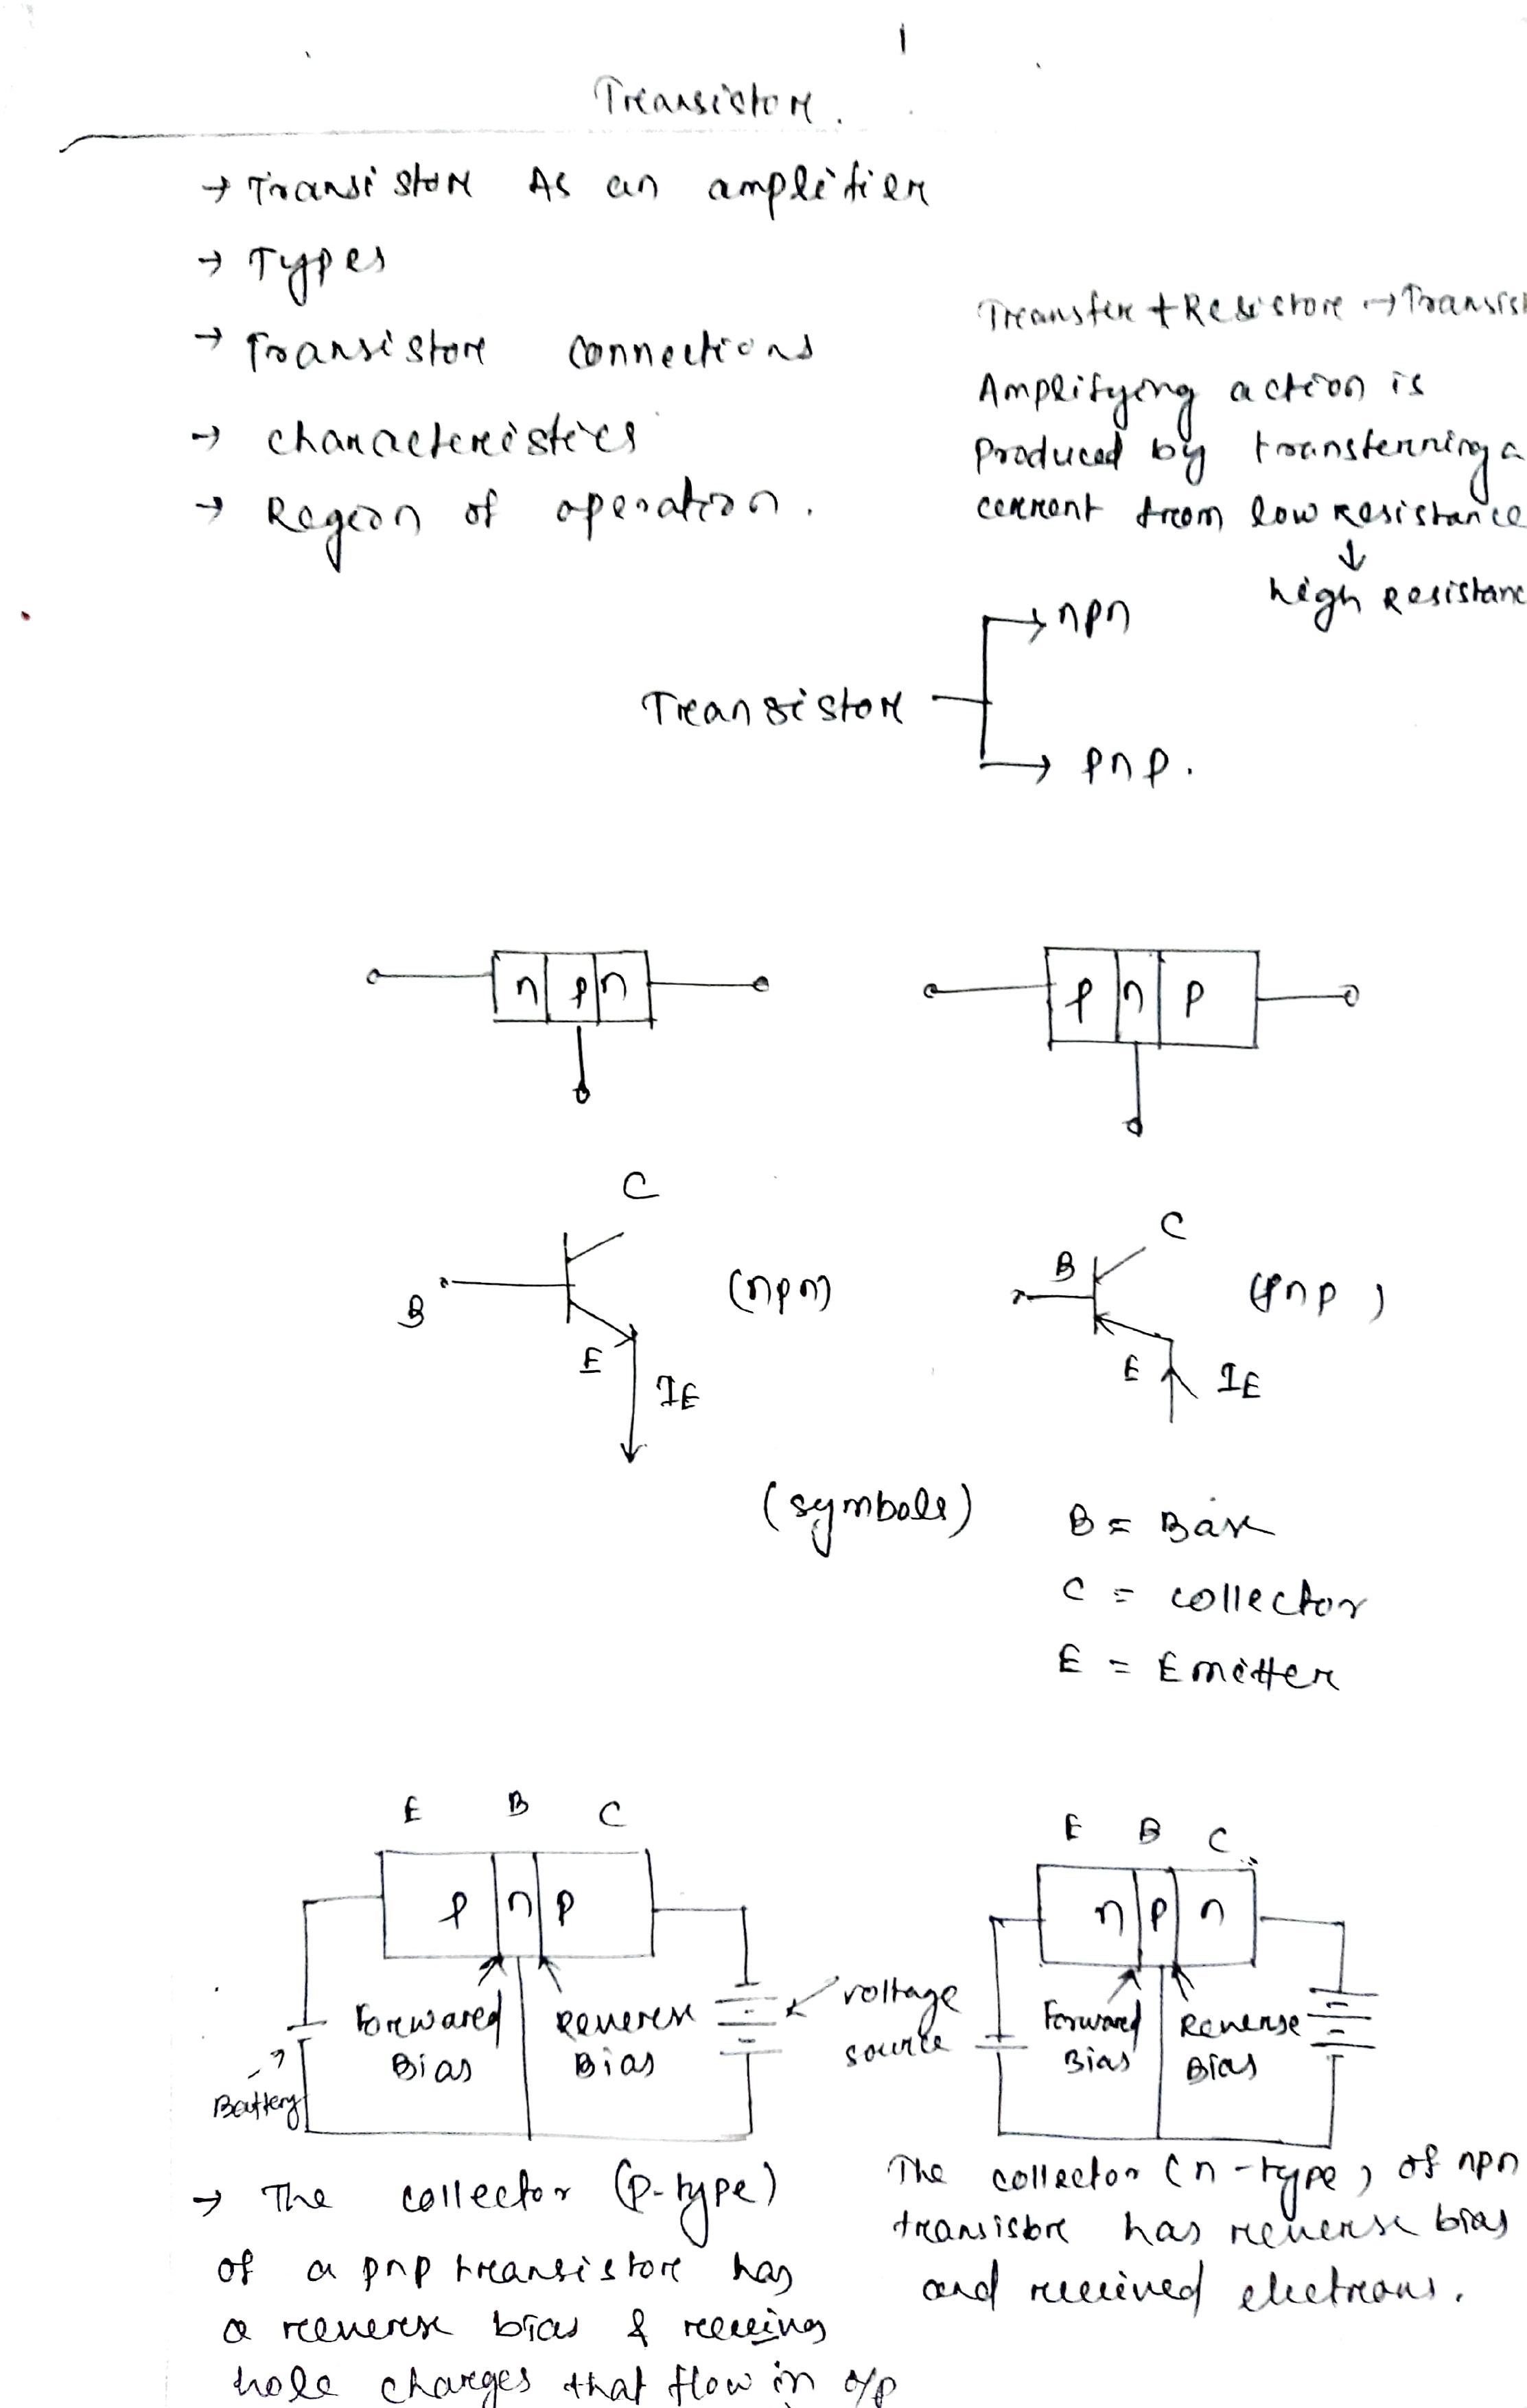 1
Transistor.
→ Transistor As an amplifier
→ Types
→ Transistor connections
→ characteristics
→ Region of operation.
Transfer + Resistor → Transist
Amplifying action is
produced by transferring a
current from low resistance
↓
high Resistanc
→ npn
Transistor
→ pnp.
n p n
p n p
C
B
(npn)
E
IE
C
B
(pnp)
E
IE
(symbols)
B = Base
C = collector
E = Emitter
E B C
p n p
Forward Bias
Reverse Bias
Battery
voltage
source
E B C
n p n
Forward Bias
Reverse Bias
→ The collector (p-type)
of a pnp transistor has
a reverse bias & receives
hole charges that flow in o/p
The collector (n-type) of npn
transistor has reverse bias
and received electrons.